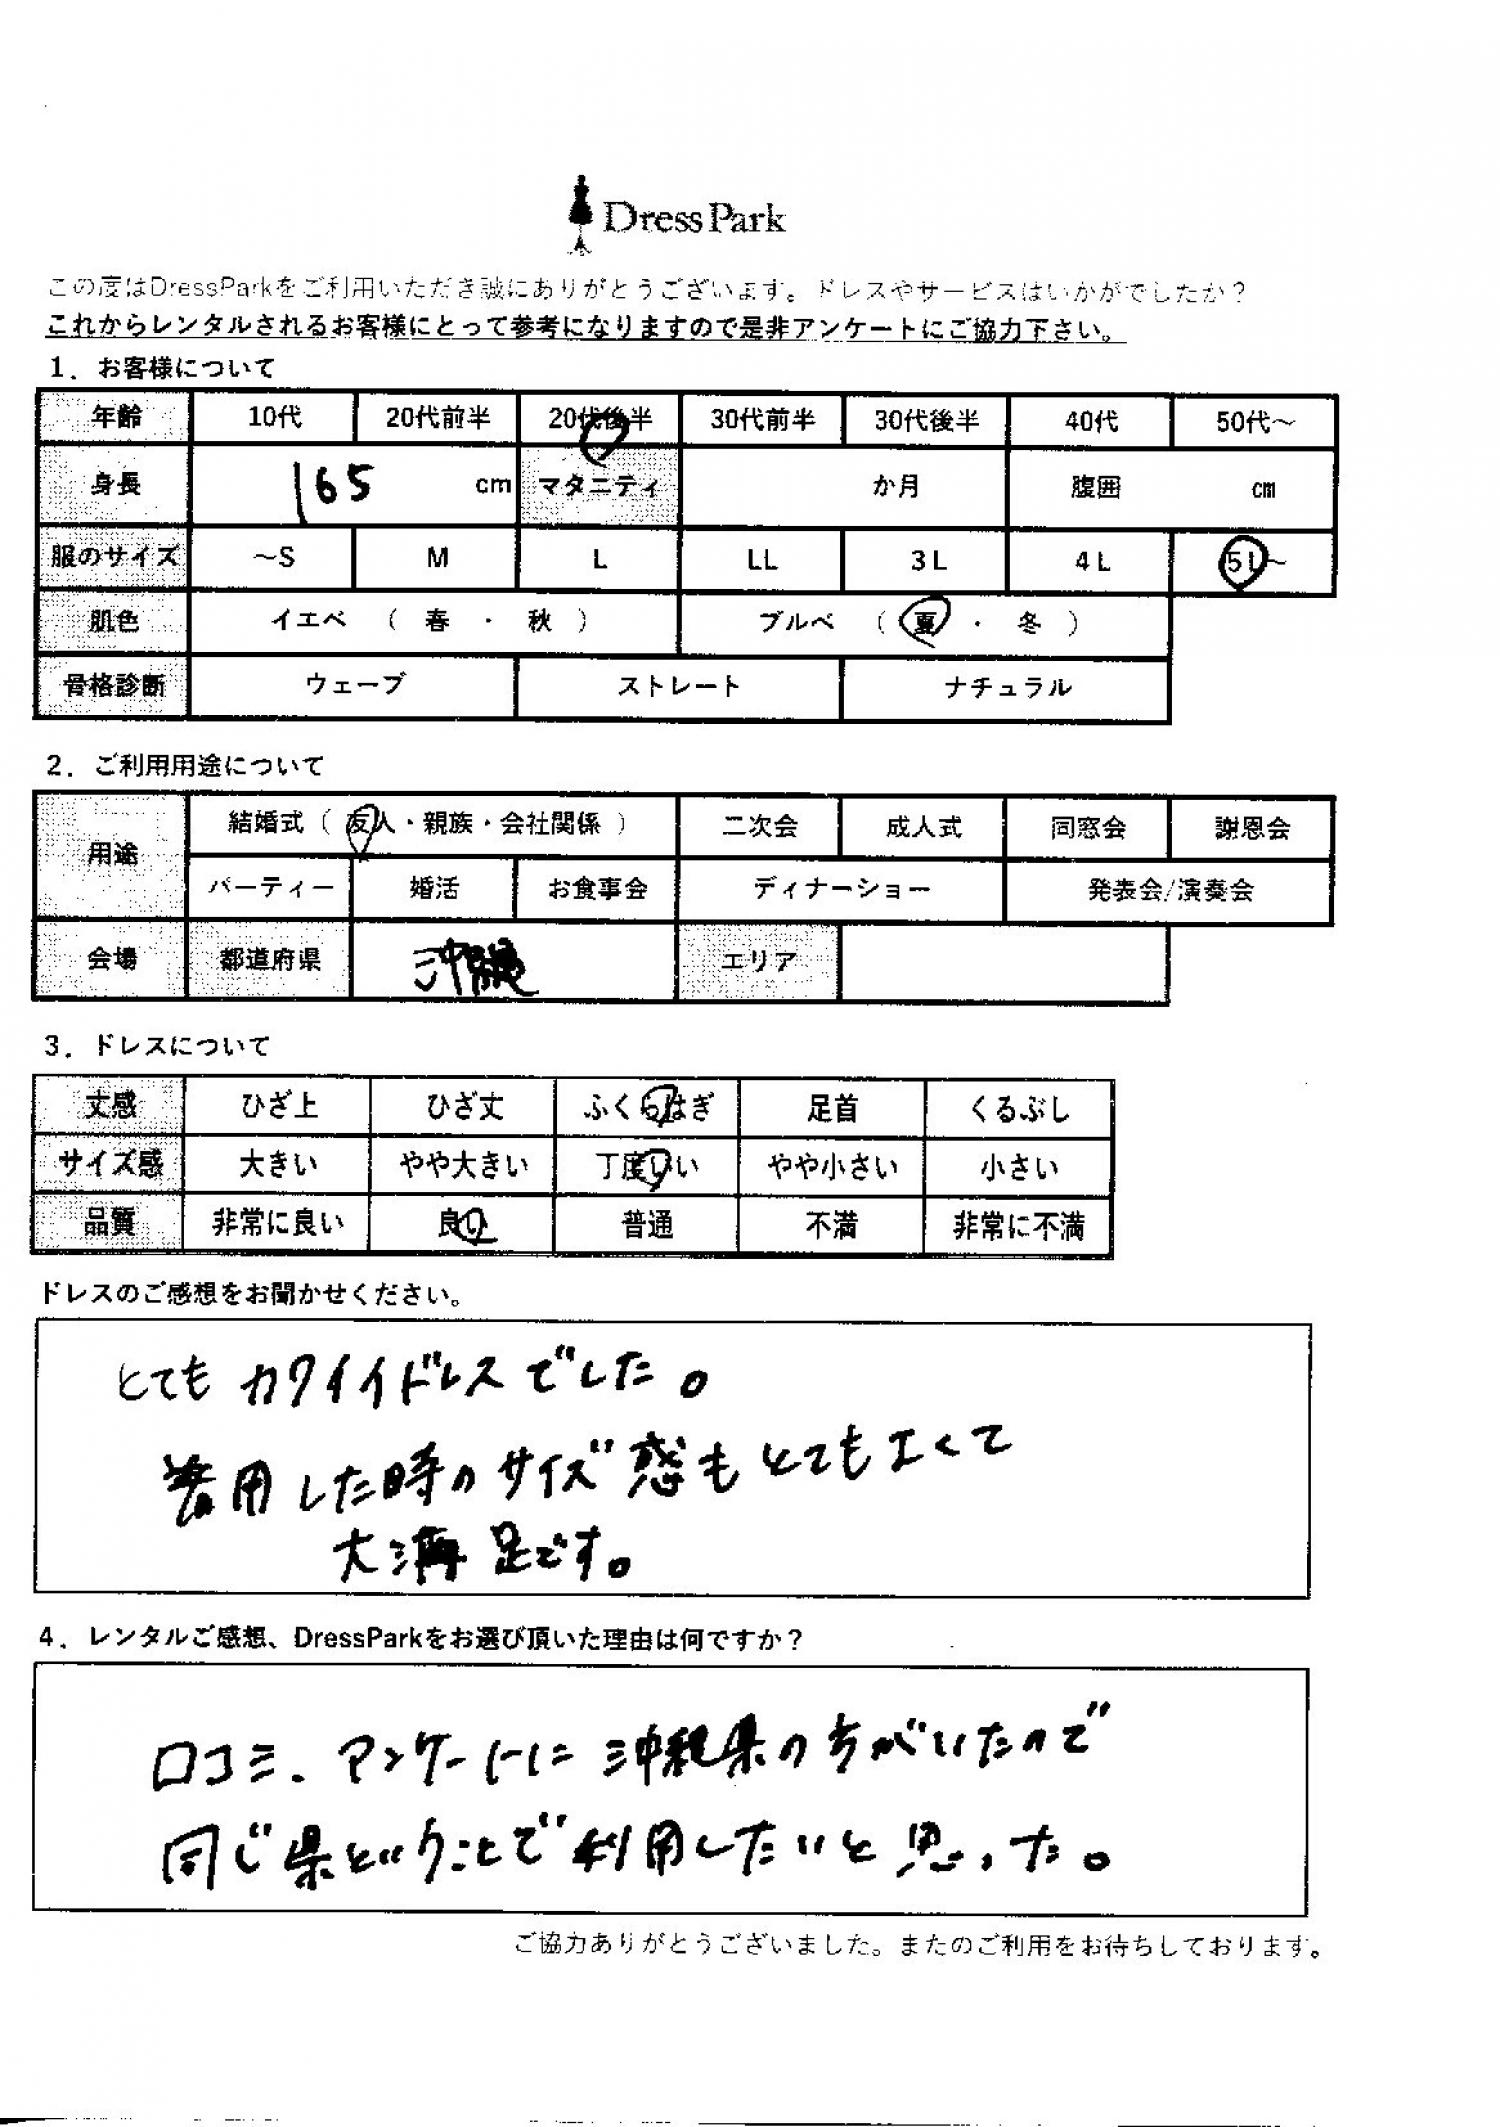 DressPark
この度はDressParkをご利用いただき誠にありがとうございます。ドレスやサービスはいかがでしたか？
これからレンタルされるお客様にとって参考になりますので是非アンケートにご協力下さい。
1．お客様について
年齢 10代 20代前半 20代後半 30代前半 30代後半 40代 50代～
身長 165 cm マタニティ か月 腹囲 cm
服のサイズ ～S M L LL 3L 4L 5L～
肌色 イエベ （ 春 ・ 秋 ） ブルベ （ 夏 ・ 冬 ）
骨格診断 ウェーブ ストレート ナチュラル
2．ご利用用途について
用途 結婚式（ 友人・親族・会社関係 ） 二次会 成人式 同窓会 謝恩会
パーティー 婚活 お食事会 ディナーショー 発表会/演奏会
会場 都道府県 沖縄 エリア
3．ドレスについて
丈感 ひざ上 ひざ丈 ふくらはぎ 足首 くるぶし
サイズ感 大きい やや大きい 丁度いい やや小さい 小さい
品質 非常に良い 良い 普通 不満 非常に不満
ドレスのご感想をお聞かせください。
とてもカワイイドレスでした。
着用した時のサイズ感もとてもよくて
大満足です。
4．レンタルご感想、DressParkをお選び頂いた理由は何ですか？
口コミ、アンケートに沖縄県の方がいたので
同じ県ということで利用したいと思った。
ご協力ありがとうございました。またのご利用をお待ちしております。